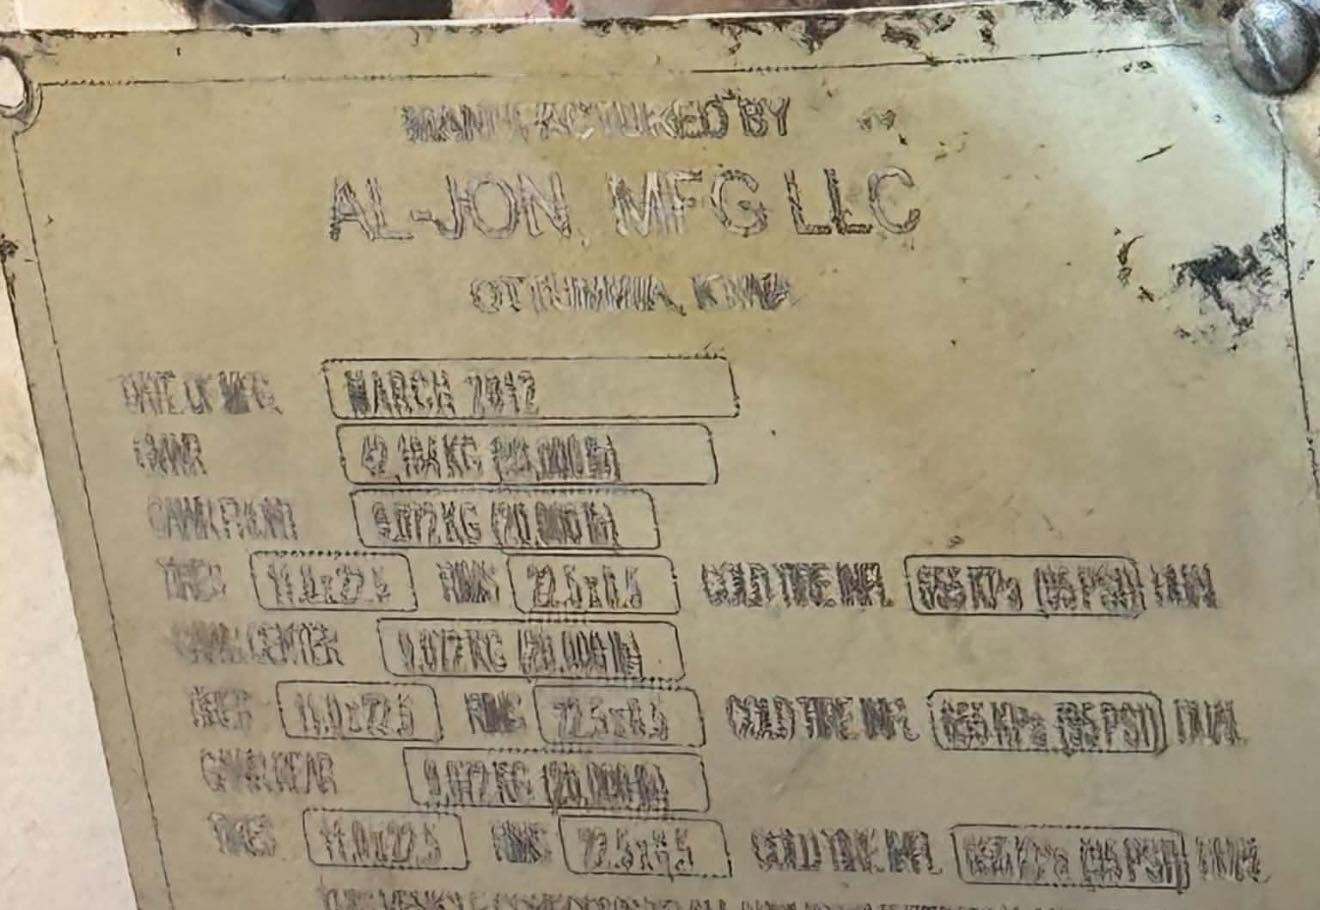 MANUFACTURED BY
AL-JON, MFG LLC
OTTUMWA, IOWA
DATE OF MFG. MARCH 2012
GVWR KG
GAWR FRONT 9,072 KG (20,000 lb)
TIRES 11.0x22.5 RIMS COLD TIRE INFL. 655 KPa (95 PSI) DUAL
GAWR CENTER 9,072 KG (20,000 lb)
TIRES 11.0x22.5 RIMS COLD TIRE INFL. 655 KPa (95 PSI) DUAL
GAWR REAR 9,072 KG (20,000 lb)
TIRES 11.0x22.5 RIMS COLD TIRE INFL. 655 KPa (95 PSI) DUAL